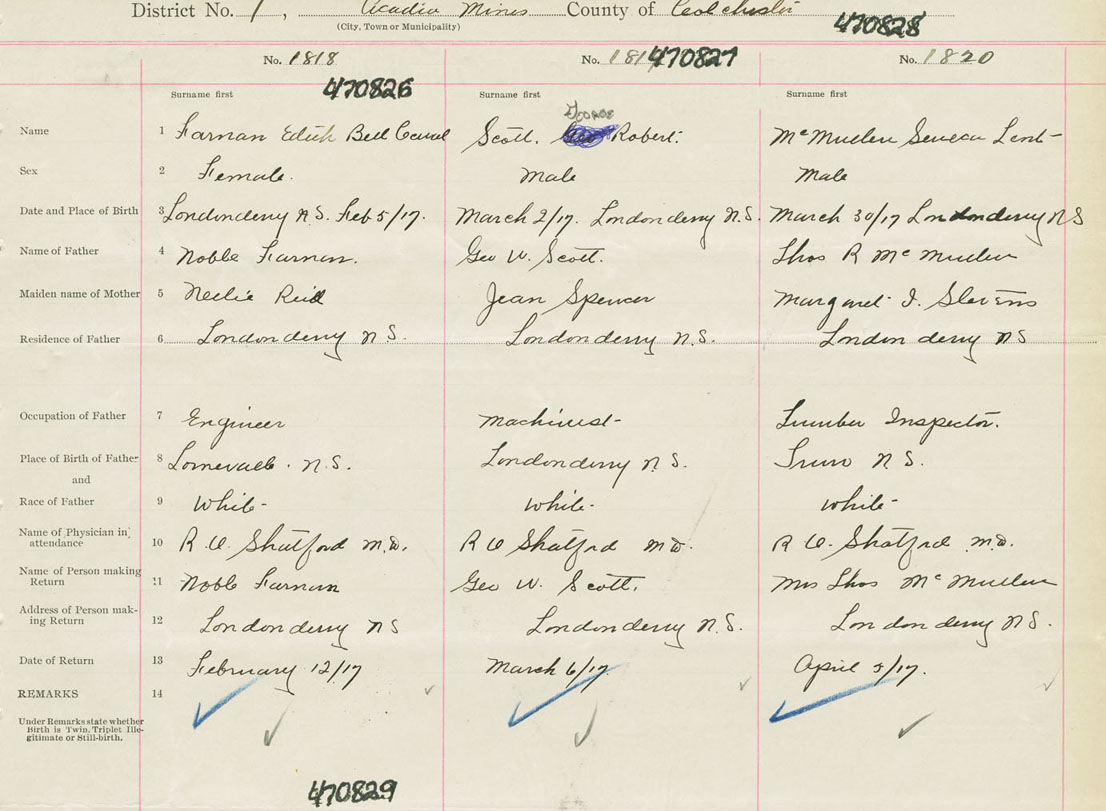 District No. 1, Acadia Mines County of Colchester
(City, Town or Municipality)
470828
No. 1818 No. 1819 470827 No. 1820
470826
Surname first Surname first Surname first
George
Name 1 Farnam Edith Bell Scott, Robert. McMullen Seneca Lent
Sex 2 Female. Male Male
Date and Place of Birth 3 Londonderry N.S. Feb 5/17. March 2/17. Londonderry N.S. March 30/17 Londonderry N S
Name of Father 4 Noble Farnam. Geo W. Scott. Thos R McMullen
Maiden name of Mother 5 Nellie Reid Jean Spencer Margaret I. Stevens
Residence of Father 6 Londonderry N.S. Londonderry N.S. Londonderry N S
Occupation of Father 7 Engineer Machinist Lumber Inspector.
Place of Birth of Father 8 Lornevale. N.S. Londonderry N.S. Truro N.S.
and
Race of Father 9 White White White
Name of Physician in attendance 10 Shatford M.D. Shatford M.D. Shatford M.D.
Name of Person making Return 11 Noble Farnam Geo W. Scott. Mrs Thos McMullen
Address of Person making Return 12 Londonderry N S Londonderry N.S. Londonderry N.S.
Date of Return 13 February 12/17 March 6/17 April 5/17.
REMARKS 14
Under Remarks state whether
Birth is Twin, Triplet Ille-
gitimate or Still-birth.
470829